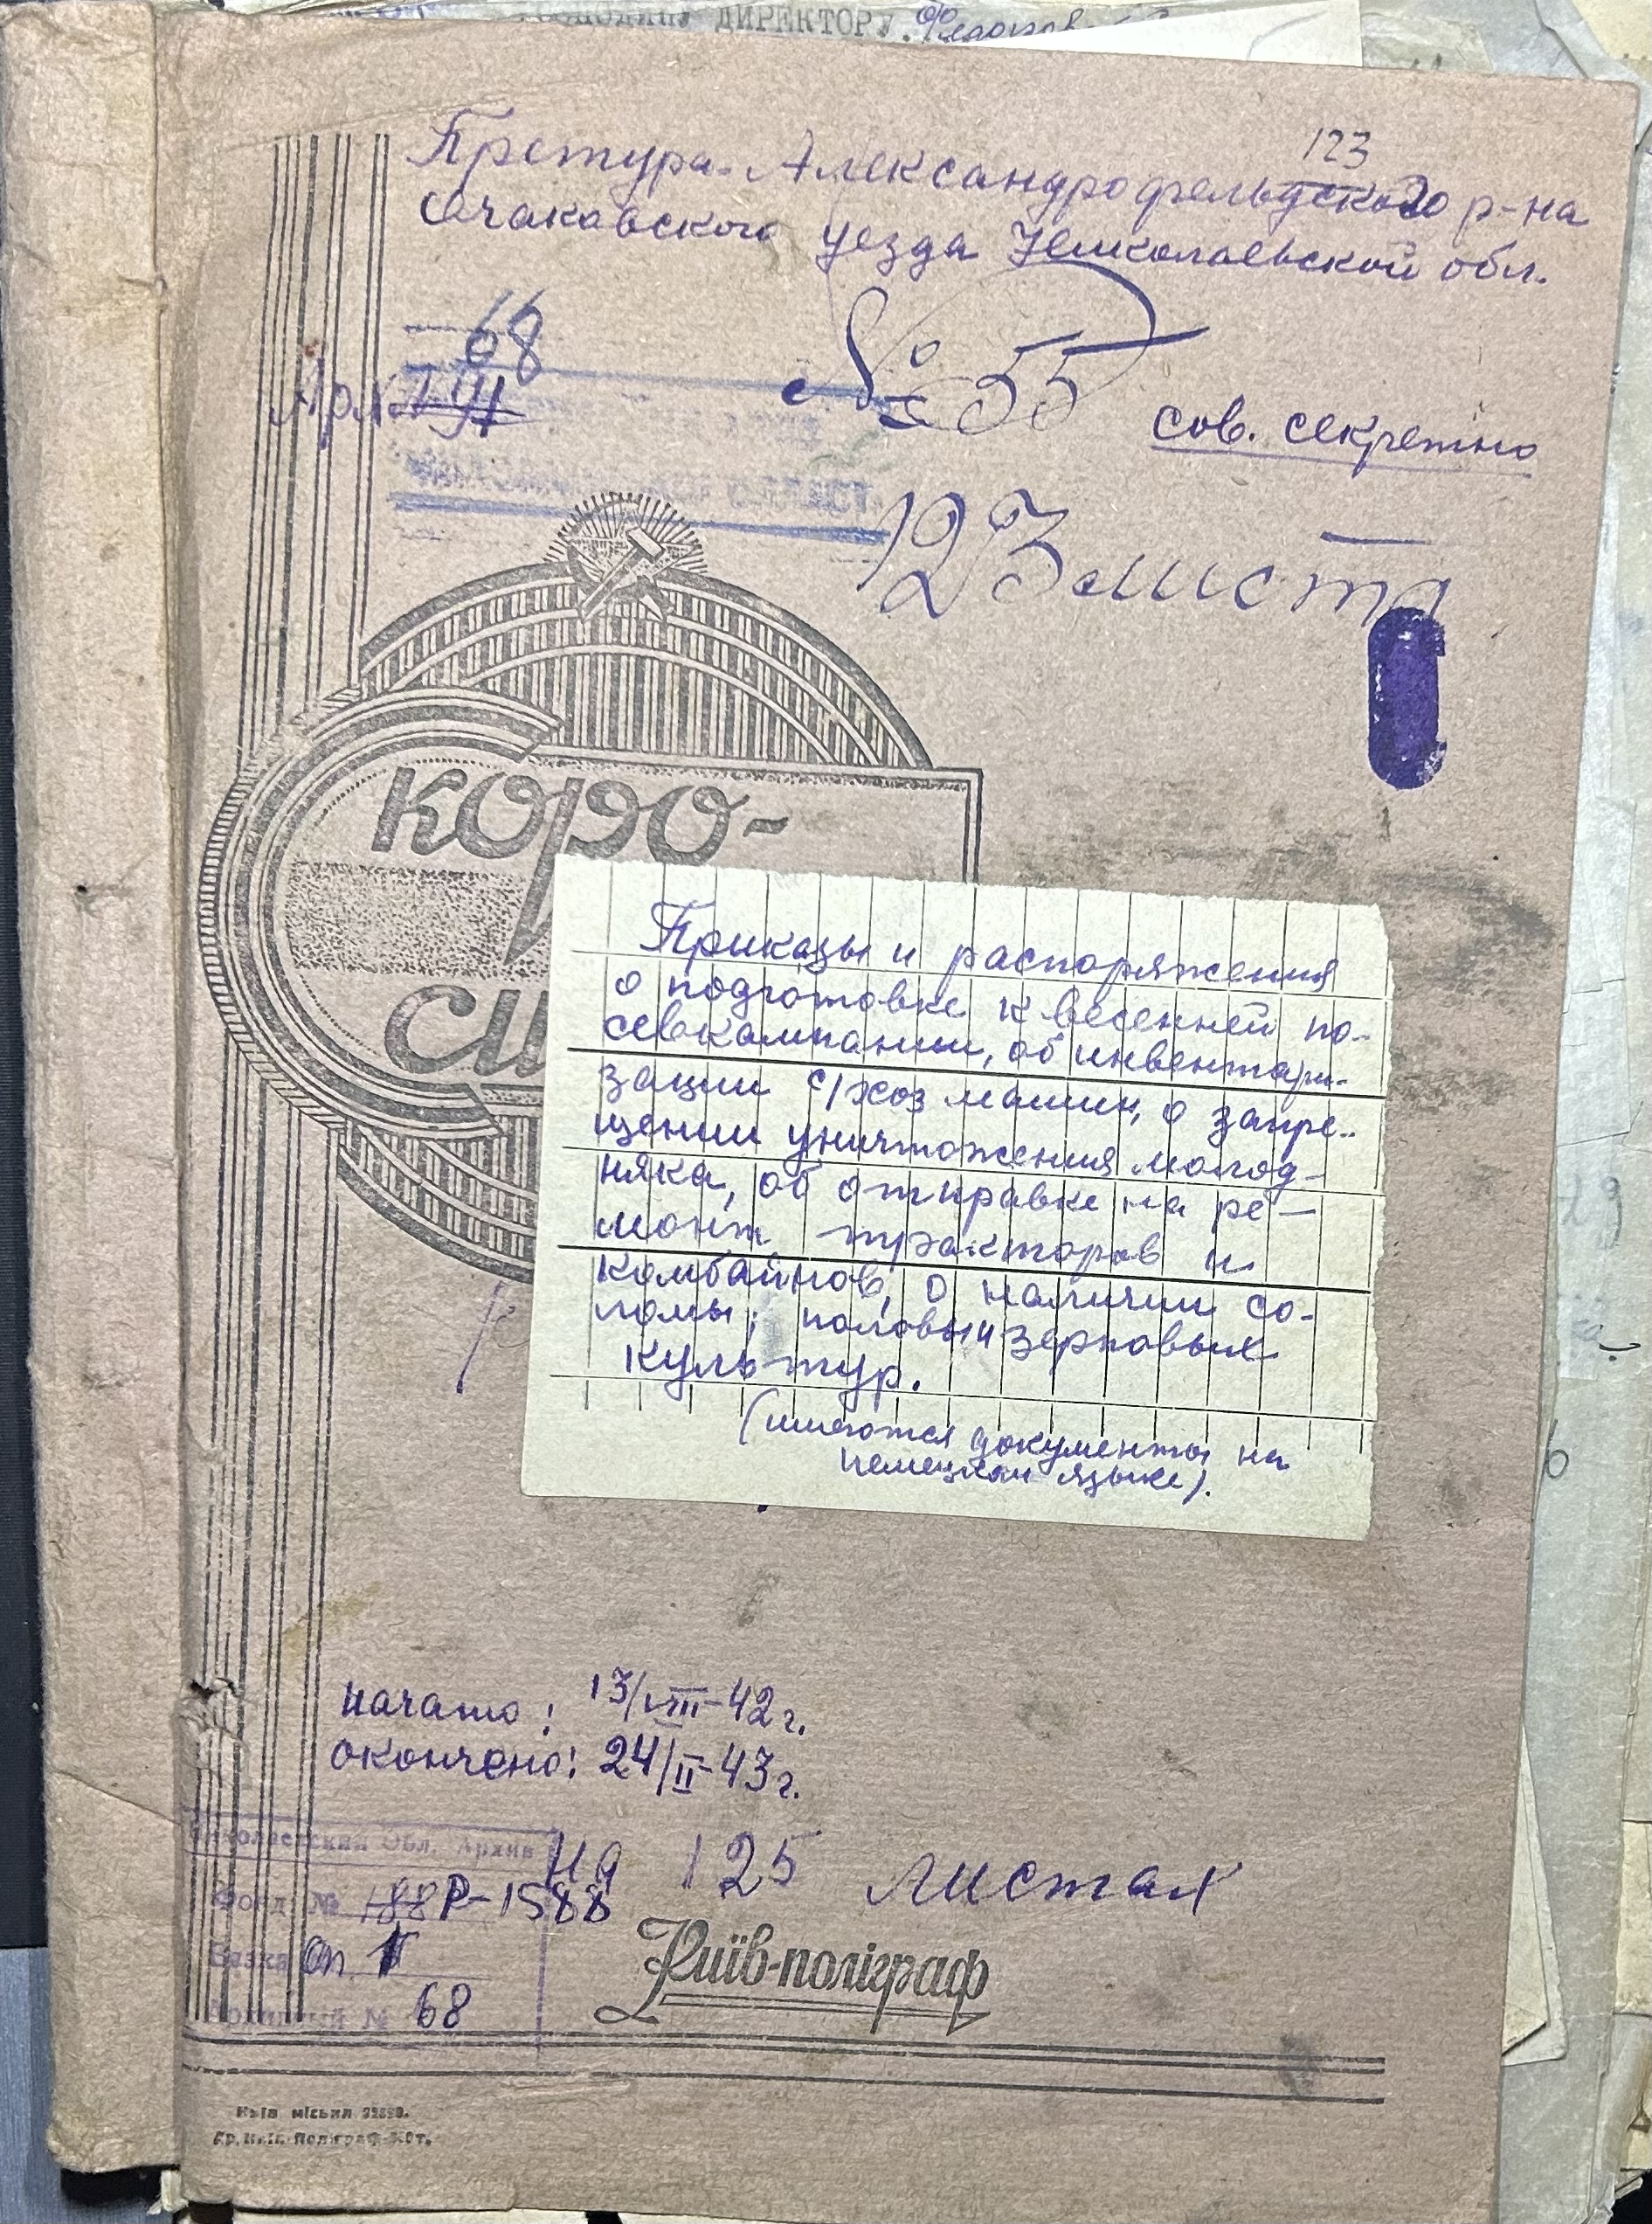 ДИРЕКТОРУ.
123
Претура Александрофельдского р-на
Очаковского уезда Николаевской обл.
68
№ 55
сов. секретно
123 листа
КОРО-
Приказы и распоряжения
о подготовке к весенней по-
севкампании, об инвентари-
зации с/хоз машин, о запре-
щении уничтожения молод-
няка, об отправке на ре-
монт тракторов и
комбайнов, о наличии со-
ломы, половы и зерновых
культур.
(имеются документы на
немецком языке).
начато: 13/VIII-42 г.
окончено: 24/II-43 г.
На 125 листах
Николаевский Обл. Архив
Фонд № 188 Р-1588
Связка оп. 1
№ 68
Київ-поліграф